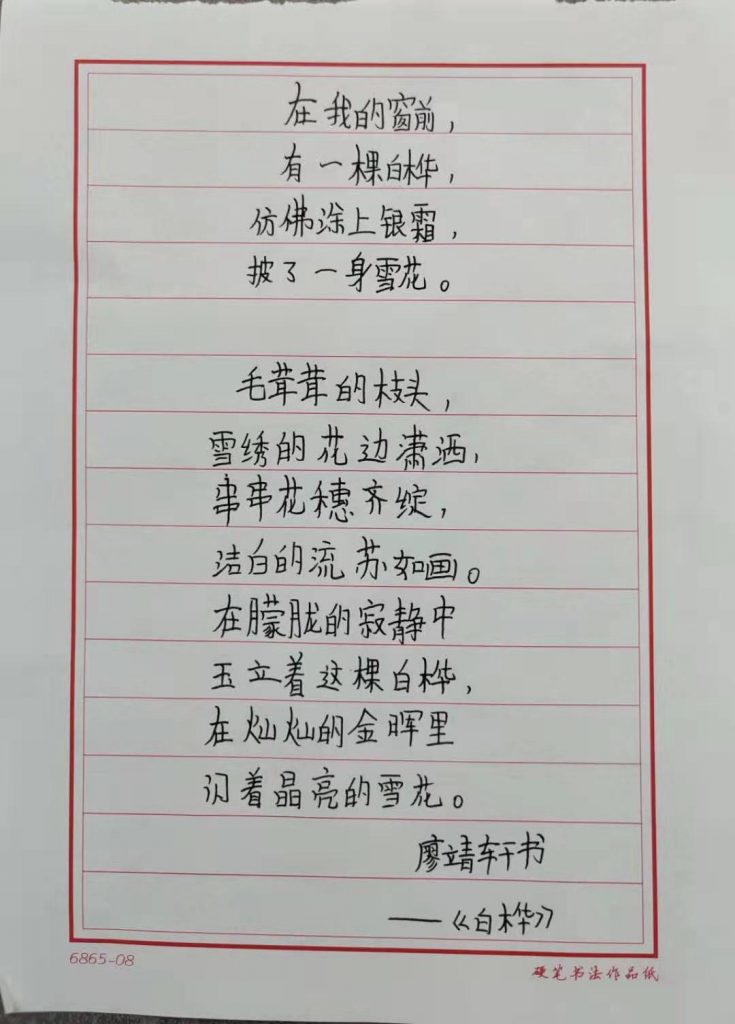 在我的窗前，
有一棵白桦，
仿佛涂上银霜，
披了一身雪花。
毛茸茸的枝头，
雪绣的花边潇洒，
串串花穗齐绽，
洁白的流苏如画。
在朦胧的寂静中
玉立着这棵白桦，
在灿灿的金晖里
闪着晶亮的雪花。
廖靖轩书
——《白桦》
6865-08
硬笔书法作品纸